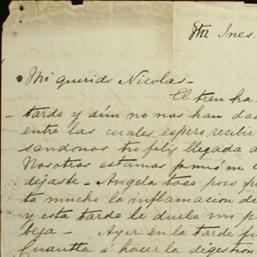 Sta Ines.
Mi querido Nicolas -
El tren ha
tarde y aún no nos han da
entre las cuales espero recibir
sandonos tu feliz llegada a
Nosotros estamos
dejaste - Angela tose poco p
ta mucho la inflamacion d
y esta tarde le duele un p
beza - Ayer en la tarde fu
Cuautla á hacer la digestion